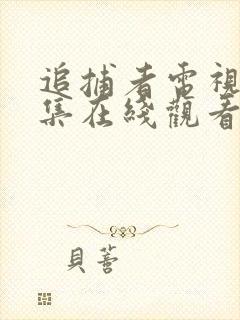 追捕者電視
集在綫觀看
貝蒈